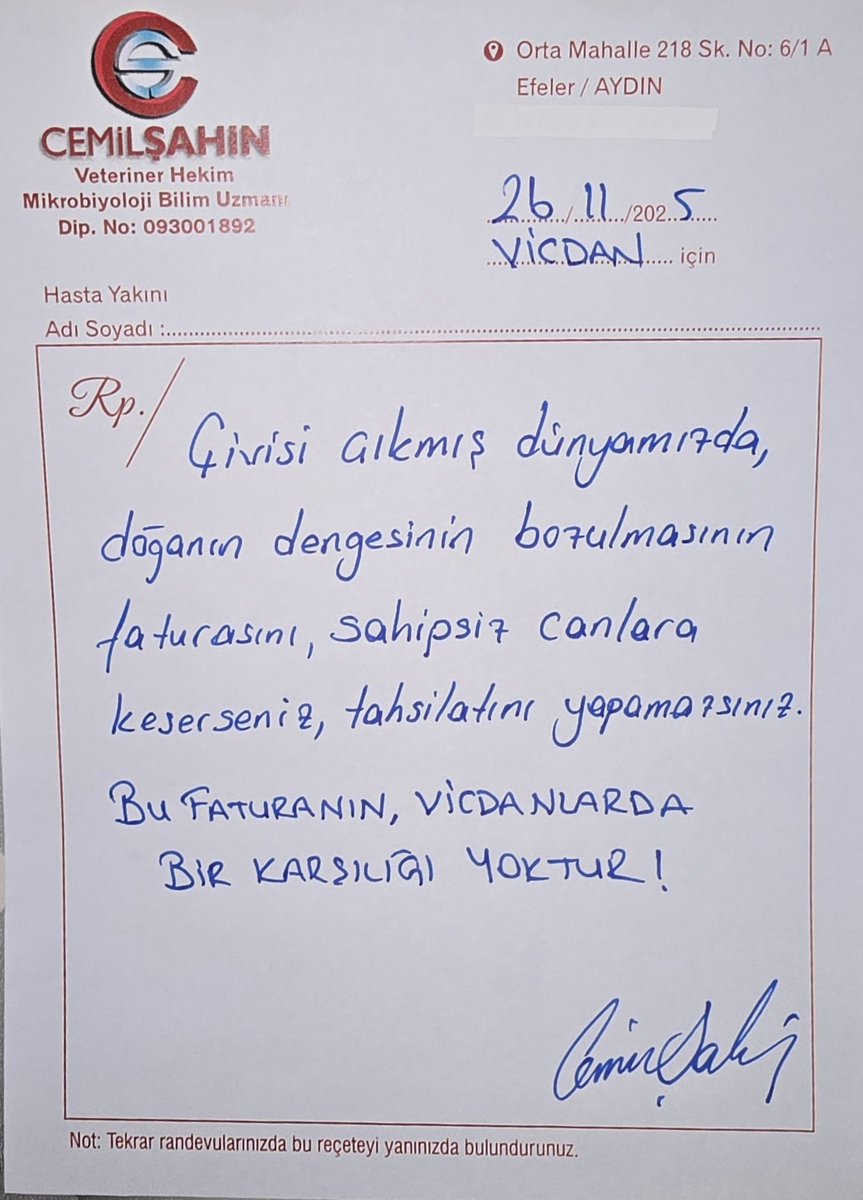 CEMİLŞAHİN
Veteriner Hekim
Mikrobiyoloji Bilim Uzmanı
Dip. No: 093001892
Orta Mahalle 218 Sk. No: 6/1 A
Efeler / AYDIN
26/11/2025
VİCDAN için
Hasta Yakını
Adı Soyadı :
Rp./
Çivisi çıkmış dünyamızda,
doğanın dengesinin bozulmasının
faturasını, sahipsiz canlara
keserseniz, tahsilatını yapamazsınız.
BU FATURANIN, VİCDANLARDA
BİR KARŞILIĞI YOKTUR!
Cemil Şahin
Not: Tekrar randevularınızda bu reçeteyi yanınızda bulundurunuz.